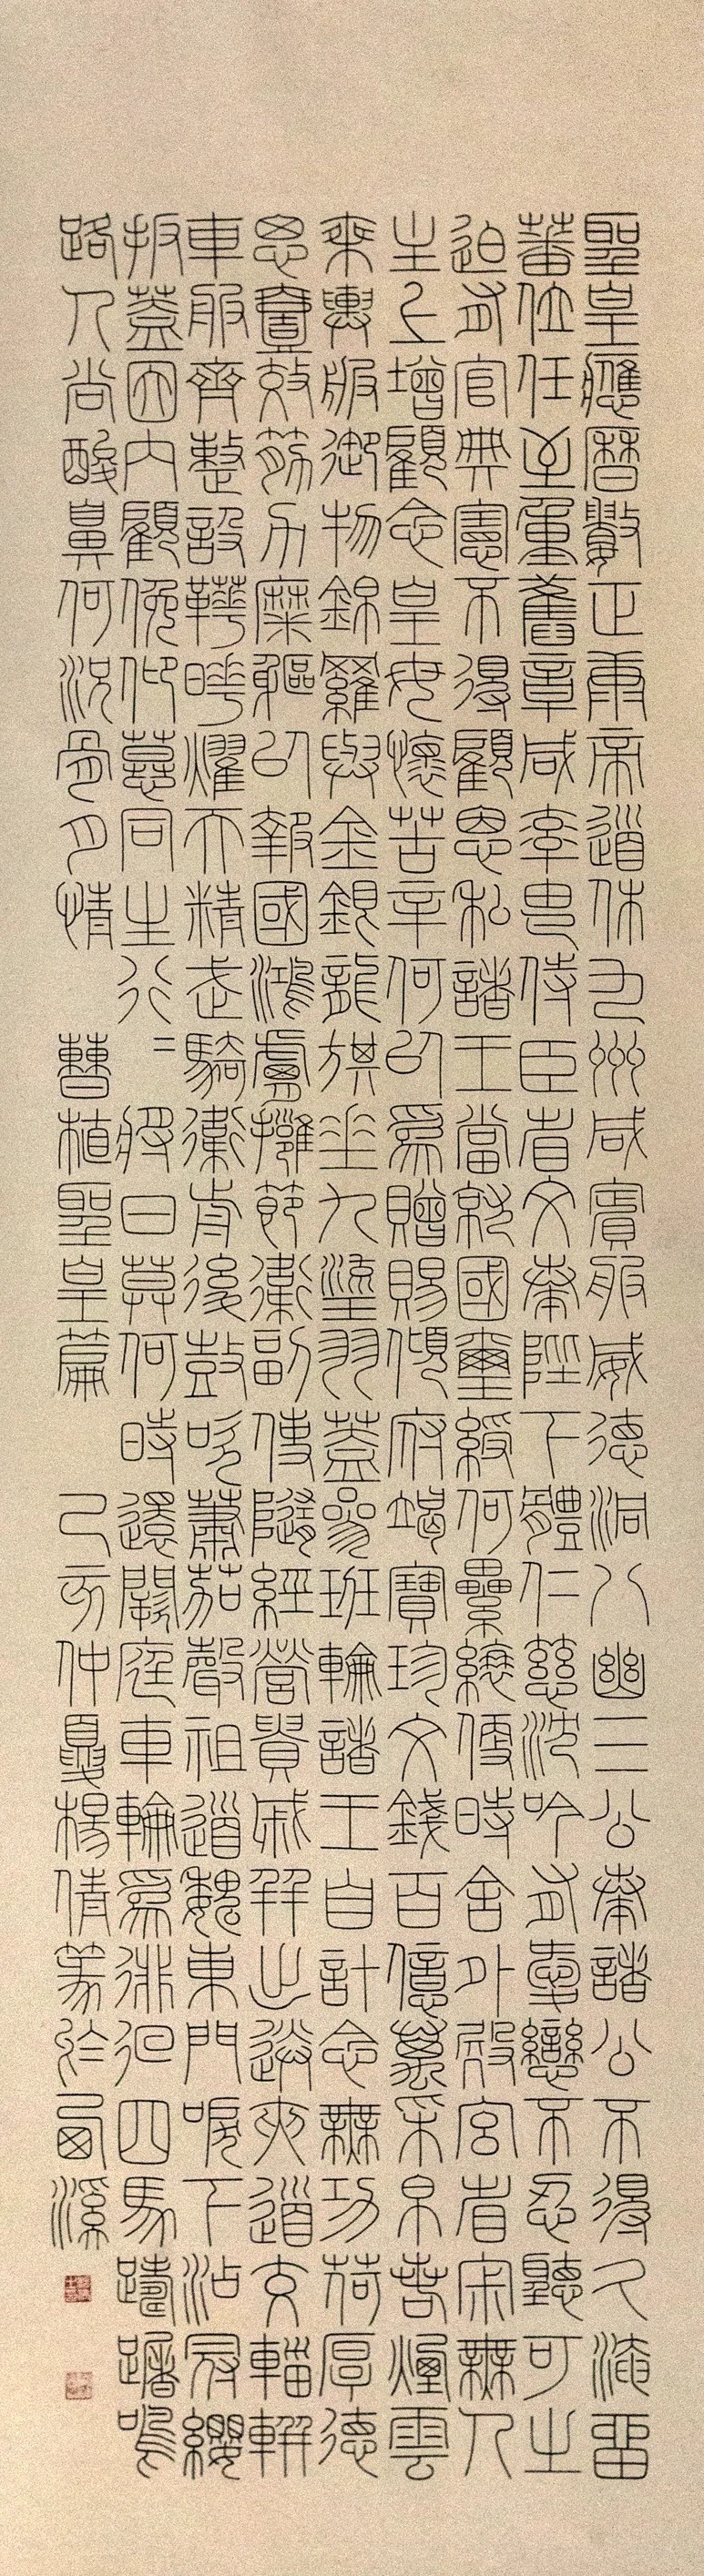 聖皇應曆數正康帝道休九州咸賓服威德洞八幽三公奏諸公不得久淹留
蕃位任至重舊章咸率由侍臣省文奏陛下體仁慈沈吟有愛戀不忍聽可之
迫有官典憲不得顧恩私諸王當就國璽綬何纍縗便時舍外殿宮省寂無人
主上增顧念皇母懷苦辛何以為贈賜傾府竭寶珍文錢百億萬采帛若煙雲
乘輿服御物錦羅與金銀龍旂垂九旒羽蓋參班輪諸王自計念無功荷厚德
思壹效筋力糜軀以報國鴻臚擁節衛副使隨經營貴戚并出送夾道交輜軿
車服齊整設韡曄耀天精武騎衛前後鼓吹蕭笳聲祖道魏東門淚下沾冠纓
扳蓋因內顧俛仰慕同生行=將日莫何時還闕庭車輪為徘徊四馬躊躇鳴
路人尚酸鼻何況骨肉情 曹植聖皇篇 己亥仲夏楊倩篆於西溪